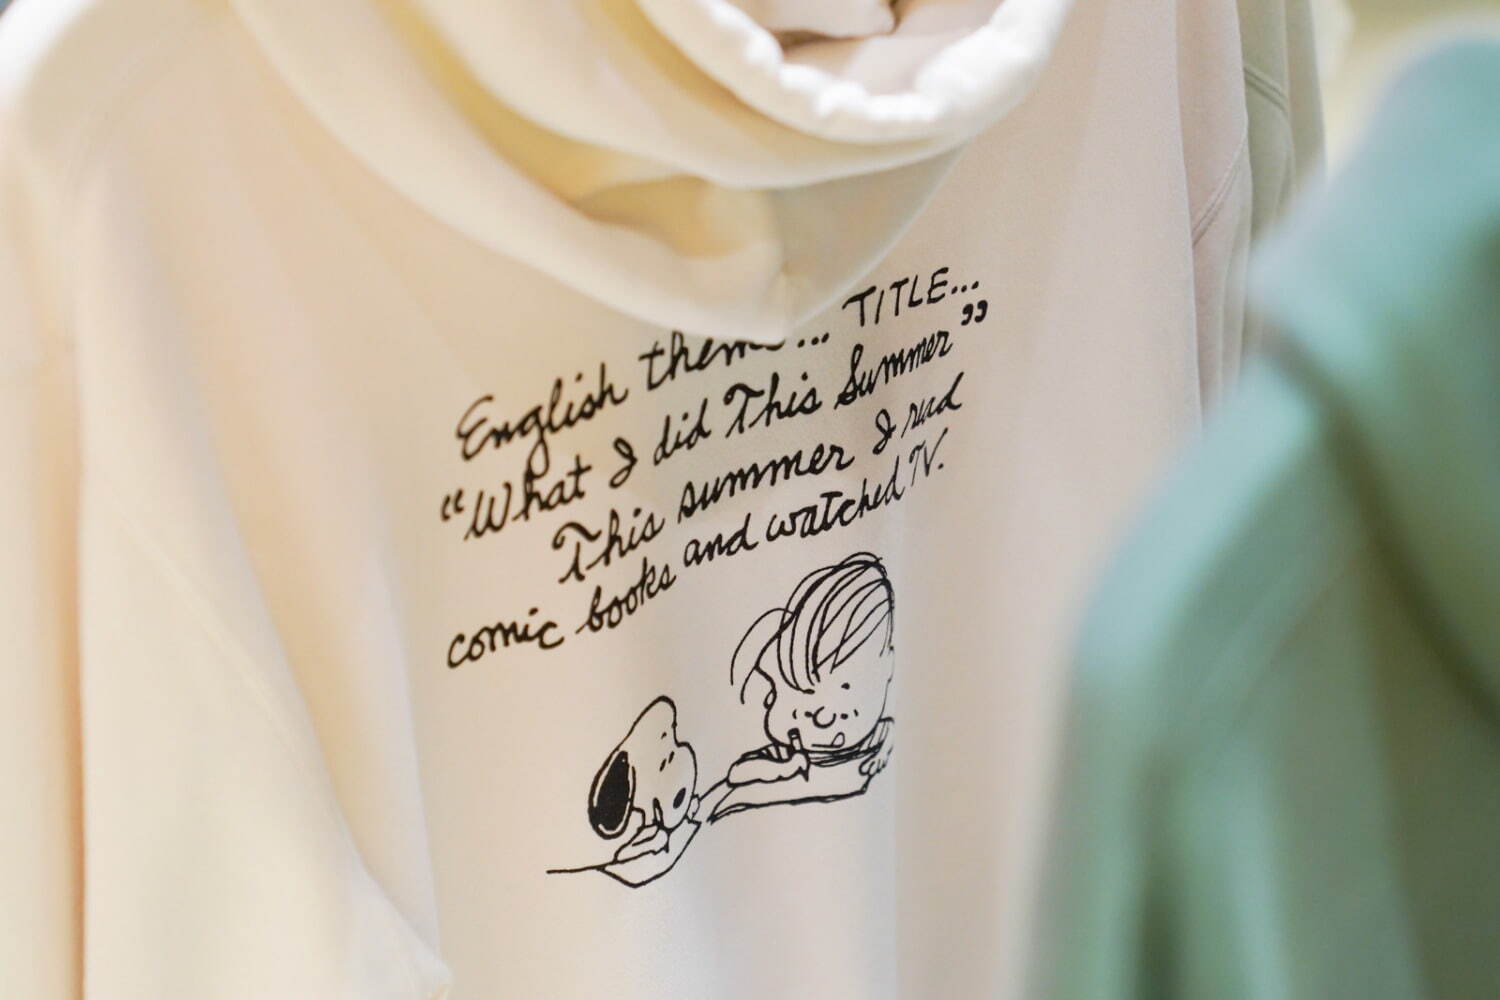 English theme... TITLE...
“What I did This Summer”
This summer I read
comic books and watched TV.